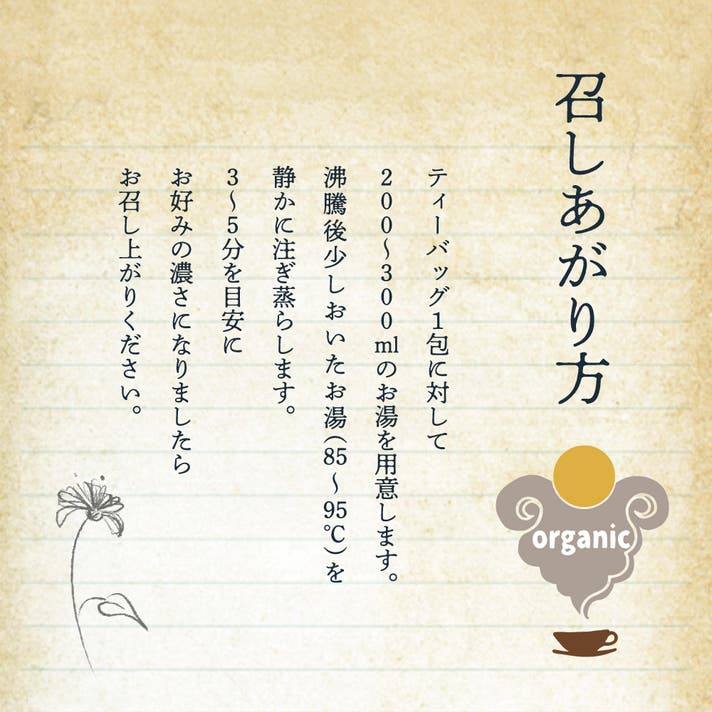 召しあがり方
ティーバッグ1包に対して
200〜300mlのお湯を用意します。
沸騰後少しおいたお湯(85〜95℃)を
静かに注ぎ蒸らします。
3〜5分を目安に
お好みの濃さになりましたら
お召し上がりください。
organic